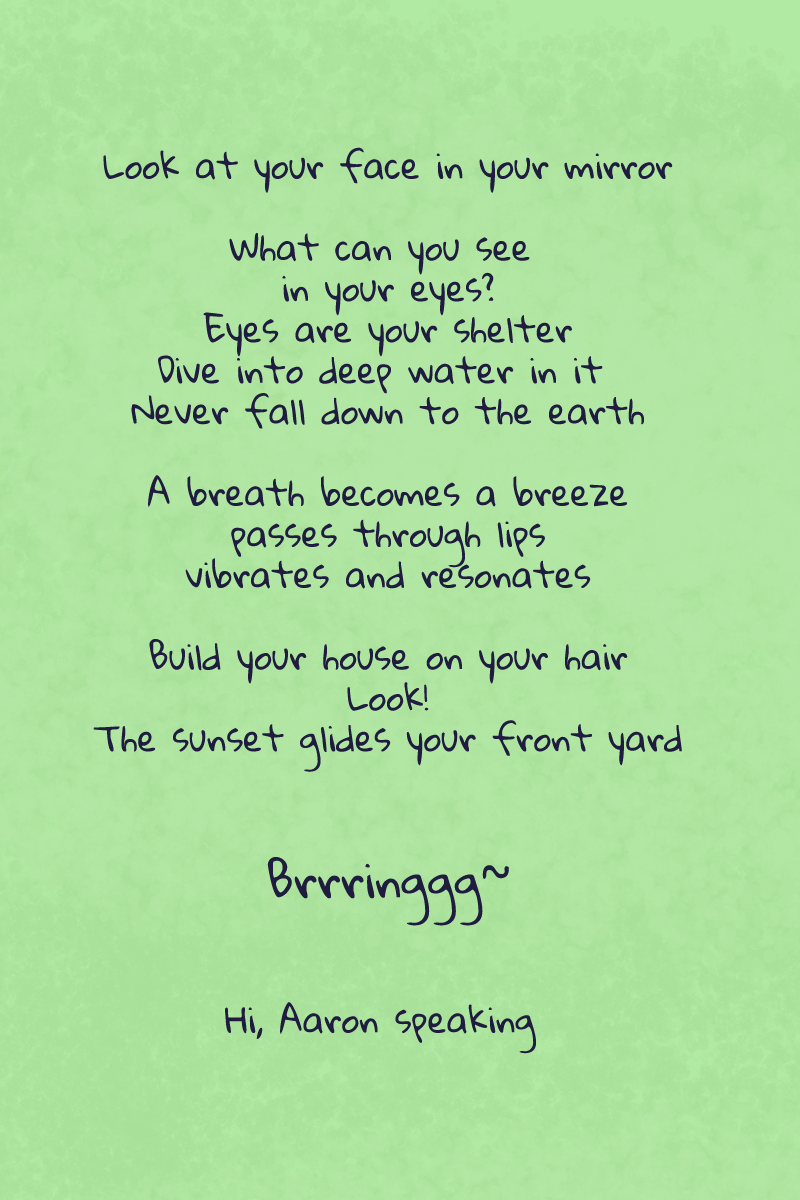 Look at your face in your mirror
What can you see
in your eyes?
Eyes are your shelter
Dive into deep water in it
Never fall down to the earth
A breath becomes a breeze
passes through lips
vibrates and resonates
Build your house on your hair
Look!
The sunset glides your front yard
Brrringgg~
Hi, Aaron speaking